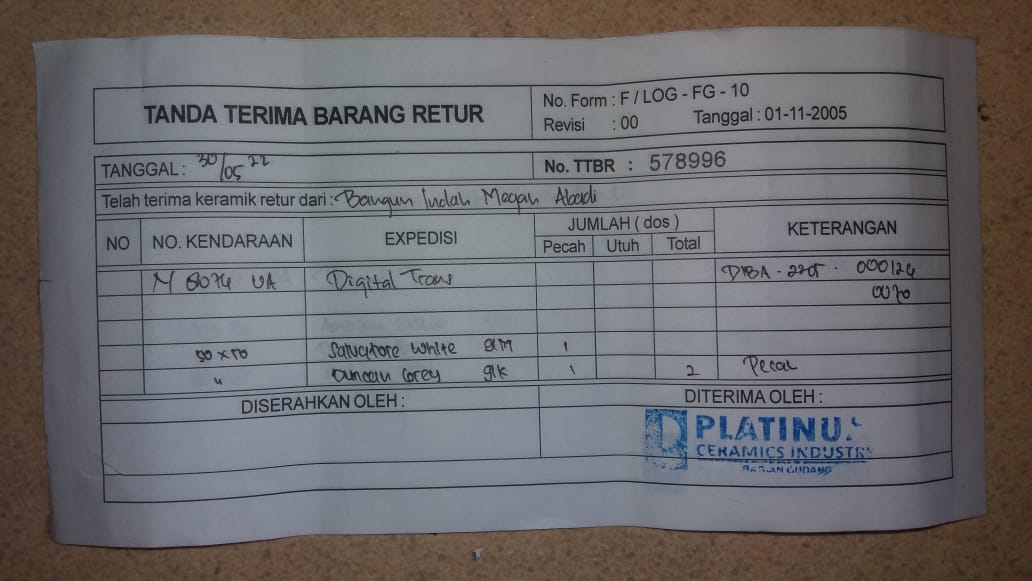 TANDA TERIMA BARANG RETUR
No. Form : F / LOG - FG - 10
Revisi : 00 Tanggal : 01-11-2005
TANGGAL : 30/05 22
No. TTBR : 578996
Telah terima keramik retur dari : Bangun Indah Megah Abadi
NO NO. KENDARAAN EXPEDISI JUMLAH ( dos ) KETERANGAN
Pecah Utuh Total
UA Digital Trans 000124
0070
50 x 50 Salvatore White 1
" Duncan Grey 1 2 Pecah
DISERAHKAN OLEH : DITERIMA OLEH :
PLATINU
CERAMICS INDUSTRY
BAGIAN GUDANG